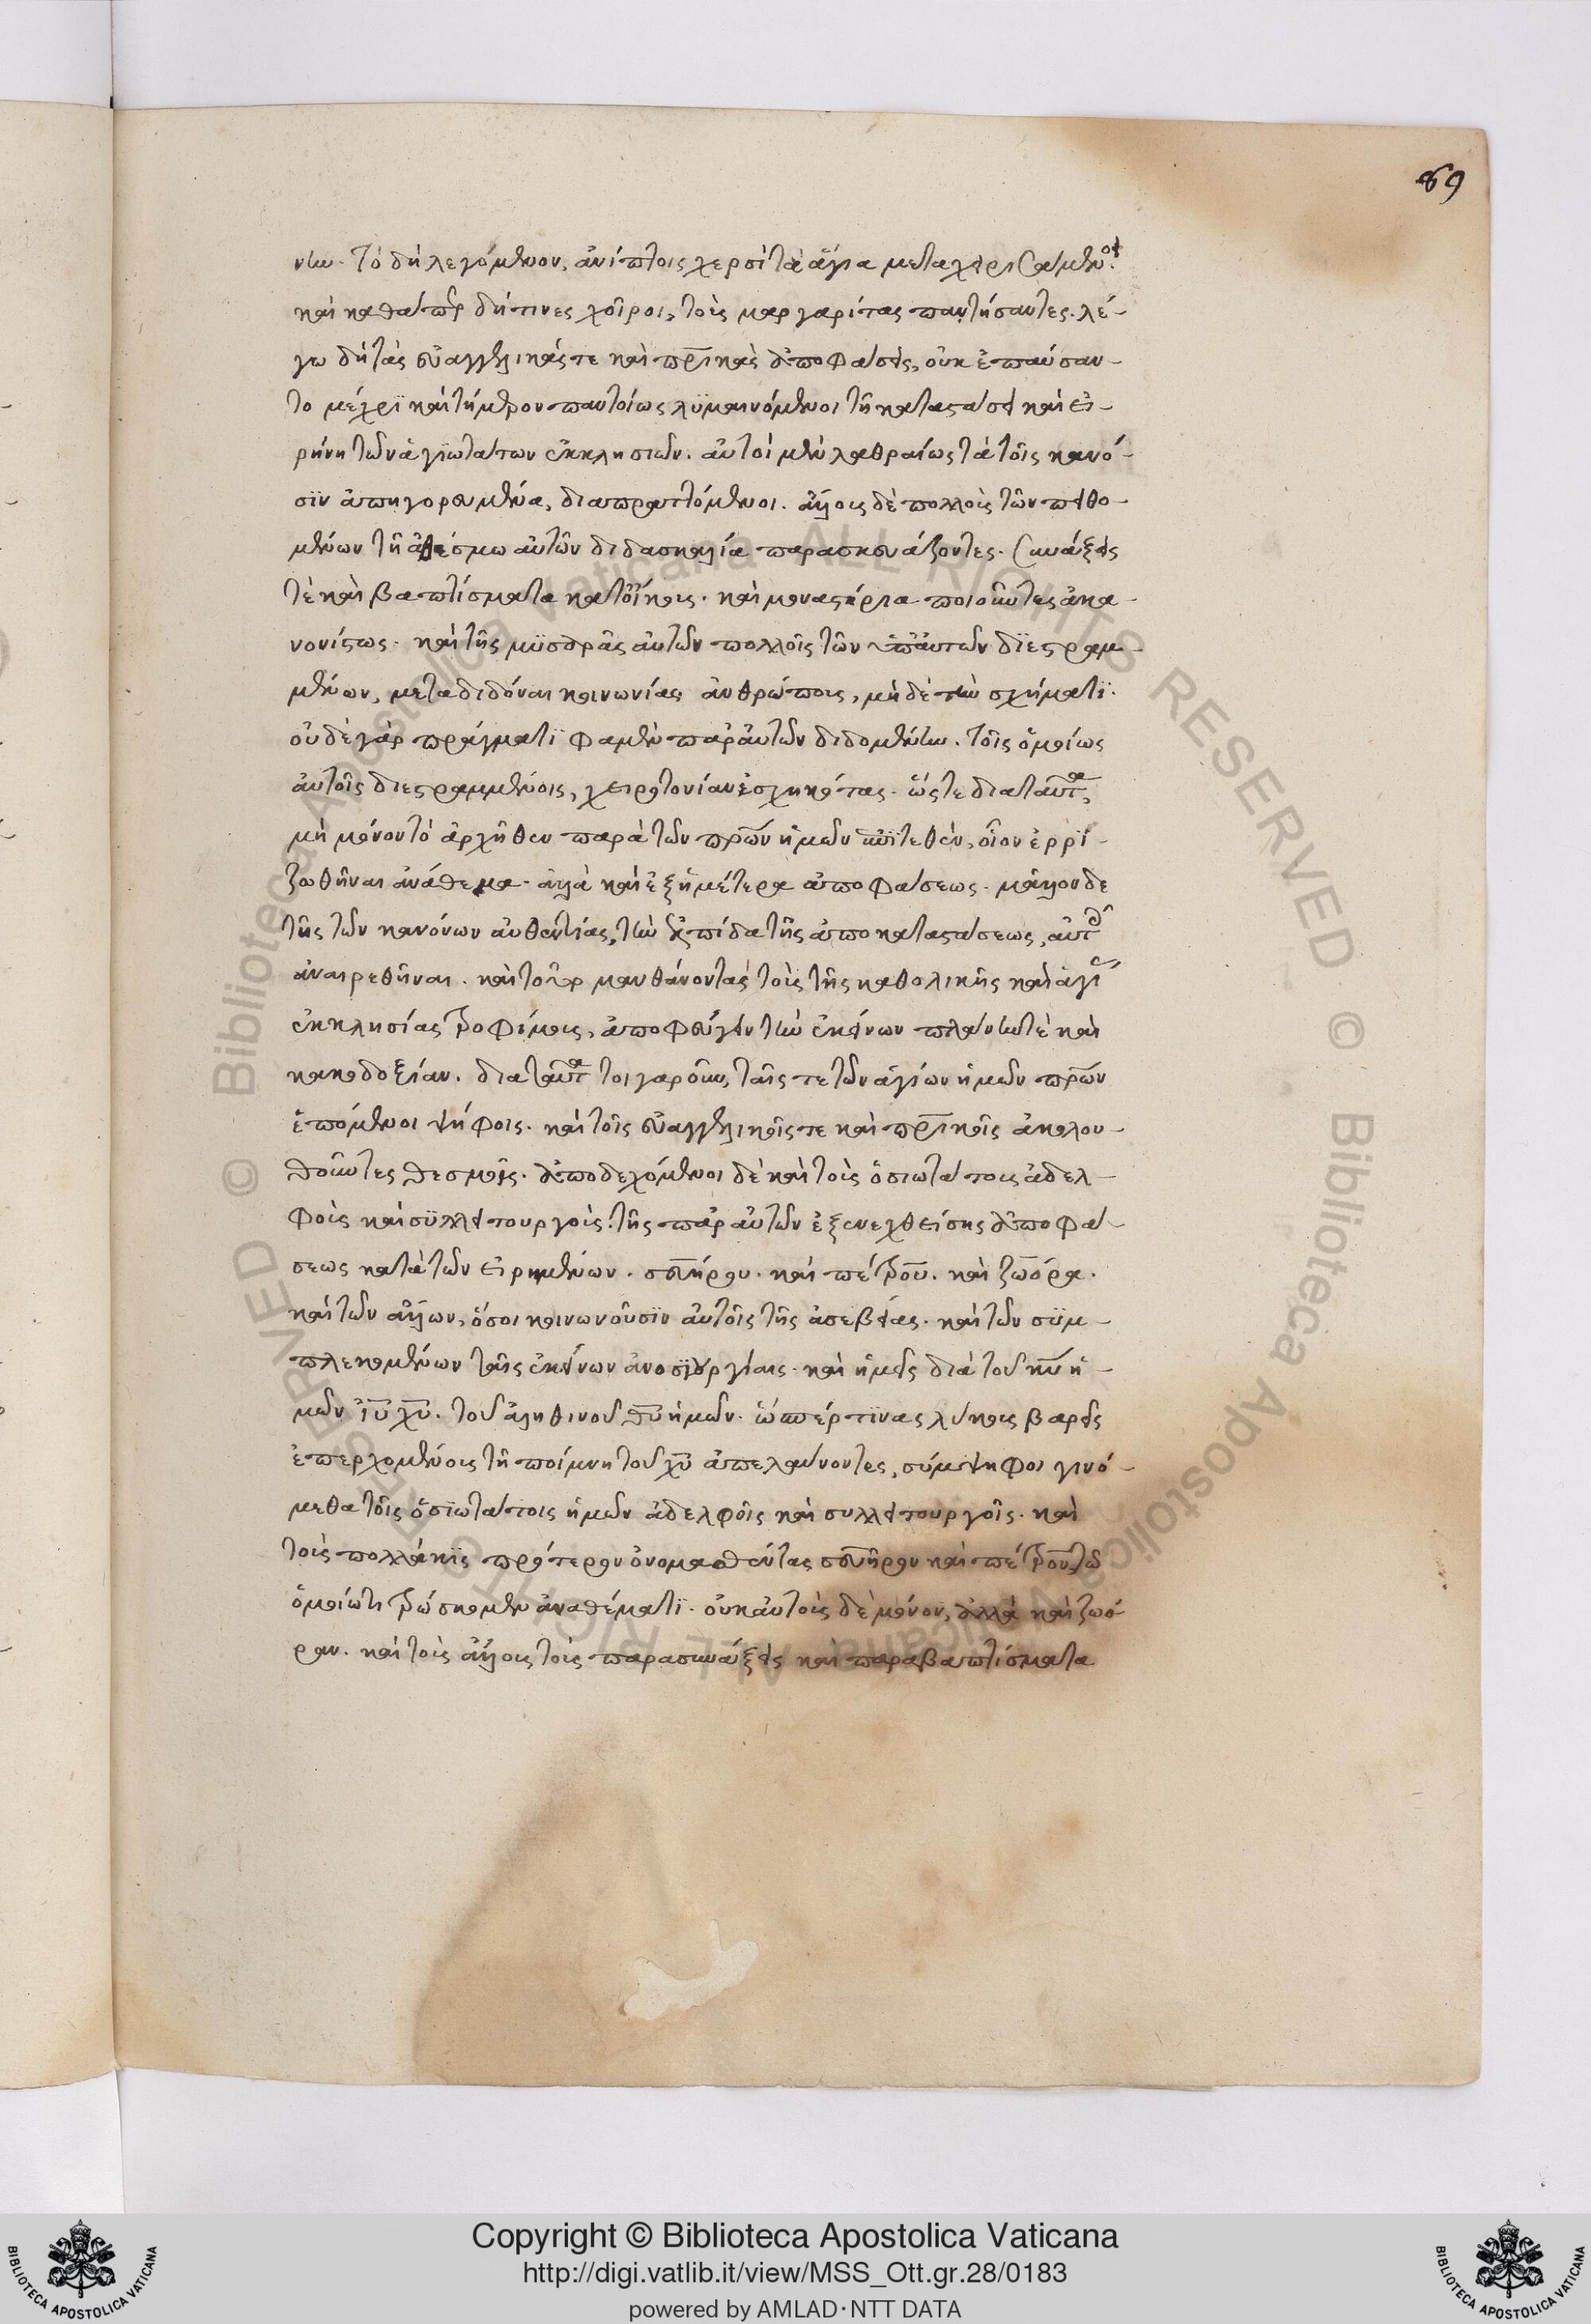 89
νην. τὸ δὴ λεγόμενον, ἀνίπτοις χερσὶ τὰ ἅγια μεταχειρισάμενοι.
καὶ καθάπερ δή τινες χοῖροι, τοὺς μαργαρίτας πατήσαντες. λέ-
γω δὴ τὰς εὐαγγελικάς τε καὶ πρικὰς ἀποφάσεις, οὐκ ἐπαύσαν-
το μέχρϊ καὶ τήμερον παντοίως λϋμαινόμενοι τῆ καταστάσει καὶ εἰ-
ρήνη τῶν ἁγϊωτάτων ἐκκλησιῶν. αὐτοὶ μὲν λαθραίως τὰ τοῖς κανό-
σϊν ἀπηγορευμένα, διαπραττόμενοι. ἄλλους δὲ πολλοὺς τῶν πειθο-
μένων τῆ ἀθέσμω αὐτῶν διδασκαλία παρασκευάζοντες. συνάξεις
τὲ καὶ βαπτίσματα κατοίκοις. καὶ μοναστήρια ποιοῦντες ἀκα-
νονίστως. καὶ τῆς μϋσαρᾶς αὐτῶν πολλοῖς τῶν ὑπ' αὐτῶν δϊεστραμ-
μένων, μεταδιδόναι κοινωνίας ἀνθρώποις, μὴ δὲ τῶ σχήματϊ.
οὐδὲ γὰρ πράγματϊ φαμὲν παρ' αὐτῶν διδομένην. τοῖς ὁμοίως
αὐτοῖς διεστραμμένοις, χειροτονίαν ἐσχηκότας. ὥστε διὰ ταῦτα,
μὴ μόνον τὸ ἀρχῆθεν παρὰ τῶν πρων ἡμῶν ἐπϊτεθὲν, οἷον ἐρρϊ-
ζωθῆναι ἀνάθεμα. ἀλλὰ καὶ ἐξ ἡμέτερα ἀποφάσεως. μᾶλλον δὲ
τῆς τῶν κανόνων αὐθεντίας, τὴν ἐλπίδα τῆς ἀποκαταστάσεως, αὐτοῖς
ἀναιρεθῆναι. καὶ τοῦτο μανθάνοντας τοὺς τῆς καθολικῆς καὶ ἁγί
ἐκκλησίας τροφίμους, ἀποφεύγειν τὴν ἐκείνων πλάνην τὲ καὶ
κακοδοξίαν. διὰ ταῦτα τοιγαροῦν, ταῖς τε τῶν ἁγίων ἡμῶν πρων
ἑπόμενοι ψήφοις. καὶ τοῖς εὐαγγελικοῖς τε καὶ πρικοῖς ἀκολου-
θοῦντες θεσμοῖς. ἀποδεχόμενοι δὲ καὶ τοὺς ὁσιωτάτους ἀδελ-
φοὺς καὶ σϋλλειτουργοὺς. τῆς παρ' αὐτῶν ἐξενεχθείσης ἀποφά-
σεως κατὰ τῶν εἰρημένων. σευήρου. καὶ πέτρου. καὶ ζωόρα.
καὶ τῶν ἄλλων, ὅσοι κοινωνοῦσϊν αὐτοῖς τῆς ἀσεβείας. καὶ τῶν σϋμ-
πλεκομένων ταῖς ἐκείνων ἀνοσϊουργίαις. καὶ ἡμεῖς διὰ τοῦ κυ ἡ-
μῶν ιυ χυ. τοῦ ἀληθινοῦ θυ ἡμῶν. ὥσπέρ τϊνας λύκους βαρεῖς
ἐπερχομένους τῆ ποίμνη τοῦ χυ ἀπελαύνοντες, σύμψηφοι γινό-
μεθα τοῖς ὁσϊωτάτοις ἡμῶν ἀδελφοῖς καὶ συλλειτουργοῖς. καὶ
τοὺς πολλάκϊς πρότερον ὀνομασθέντας σευῆρον καὶ πέτρον τῶ
ὁμοίω τιτρώσκομεν ἀναθέματϊ. οὐκ αὐτοὺς δὲ μόνον, ἀλλὰ καὶ ζωό
ραν. καὶ τοὺς ἄλλους τοὺς παρασυνάξεις καὶ παραβαπτίσματα
Copyright © Biblioteca Apostolica Vaticana
http://digi.vatlib.it/view/MSS_Ott.gr.28/0183
powered by AMLAD·NTT DATA